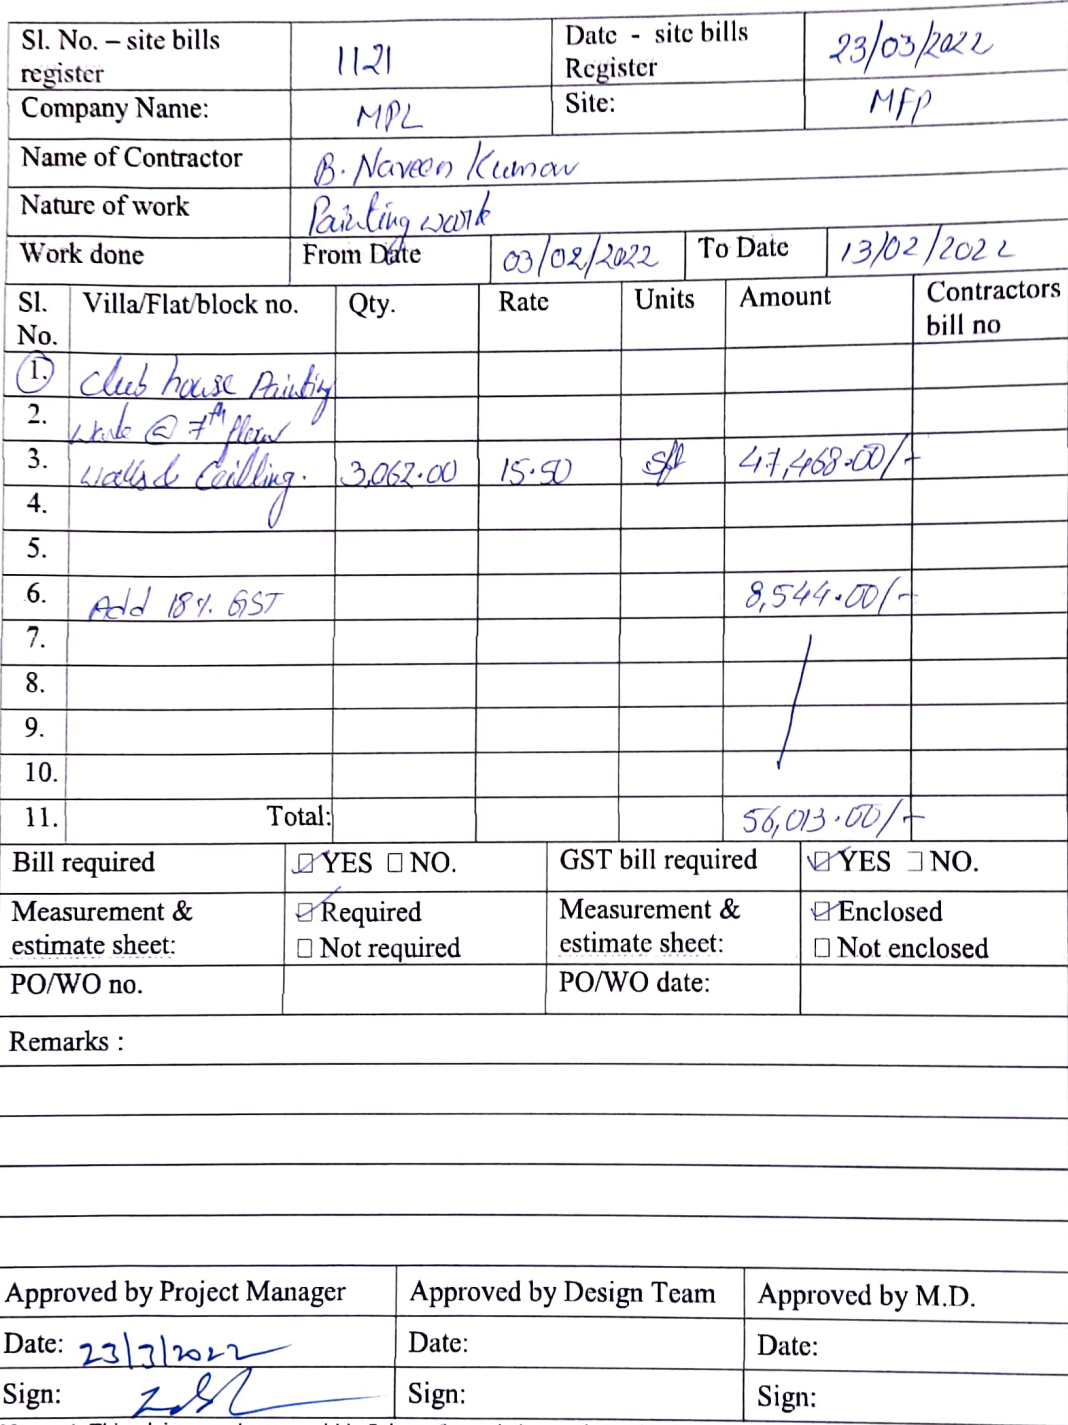 Sl. No. – site bills register 1121 Date - site bills Register 23/03/2022
Company Name: MPL Site: MFP
Name of Contractor B. Naveen Kumar
Nature of work Painting work
Work done From Date 03/02/2022 To Date 13/02/2022
Sl. No. Villa/Flat/block no. Qty. Rate Units Amount Contractors bill no
1. Club house Painting
2. work @ 7th floor
3. walls & Ceilling. 3,062.00 15.50 sft 47,468.00/-
4.
5.
6. Add 18% GST 8,544.00/-
7.
8.
9.
10.
11. Total: 56,013.00/-
Bill required ☑ YES ☐ NO. GST bill required ☑ YES ☐ NO.
Measurement & estimate sheet: ☑ Required ☐ Not required Measurement & estimate sheet: ☑ Enclosed ☐ Not enclosed
PO/WO no. PO/WO date:
Remarks :
Approved by Project Manager Approved by Design Team Approved by M.D.
Date: 23/3/2022 Date: Date:
Sign: Sign: Sign: